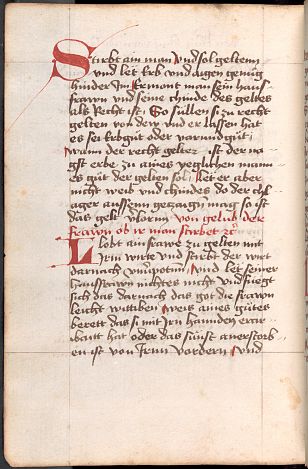 Stirbt ain man vnd sol geltenn
vnd let Erb vnd aigen genug
hinder Im Ermont man sein haus
frawn vnd seine chinde des geltes
als Recht ist So sullen si zu recht
gelten von dew vnd er lassen hat
es sei Erbgut oder varund gut
wann der recht gelter ist der na
gst erbe zu aines yeglichen mann
es gut der gelten sol let er aber
nicht weib vnd chindes do der chl
ager aussenn gezaigen mag so ist
das gelt vlorenn von gelub der
frawen ob ir man stirbet etc
Lobt ain frawe zu gelten mit
Irm wirte vnd stirbt der wirt
darnach vnd let seiner
hausfrawn nichtes nicht vnd fuegt
sich das darnach das got die frawn
leicht wittiben weis aines gutes
berett das si mit Irn hannden erar
baitt hat oder das suust anerstorb
en ist von Irnn vordern vnd